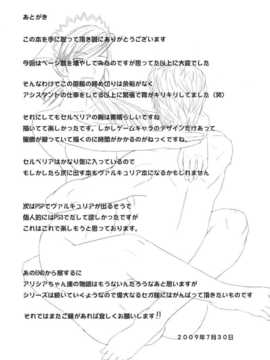 あとがき
この本を手に取って頂き誠にありがとうございます
今回はページ数を増やしてみたのですが思ってた以上に大変でした
そんなわけでこの原稿の締め切りは余裕がなく
アシスタントの仕事をしてる以上に緊張で胃がキリキリしてました（笑）
それにしてもセルベリアの胸は素晴らしいですね
描いてて楽しかったです。しかしゲームキャラのデザインだけあって
描いていくのに時間がかかるのがねっくですね。
セルベリアはかなり気に入っているので
もしかしたら次に出す本もヴァルキュリア本になるかもしれません
次はPSPでヴァルキュリアが出るそうで
個人的にはPS3でだして欲しかったですが
これはこれで楽しもうと思っております。
あのENDから察するに
アリシアちゃん達の物語はもうないんだろうなあと思いますが
シリーズは続いていくようなので偉大なるセガ様にはがんばって頂きたいものです
それではまたご縁があれば宜しくお願いします!!
2009年7月30日